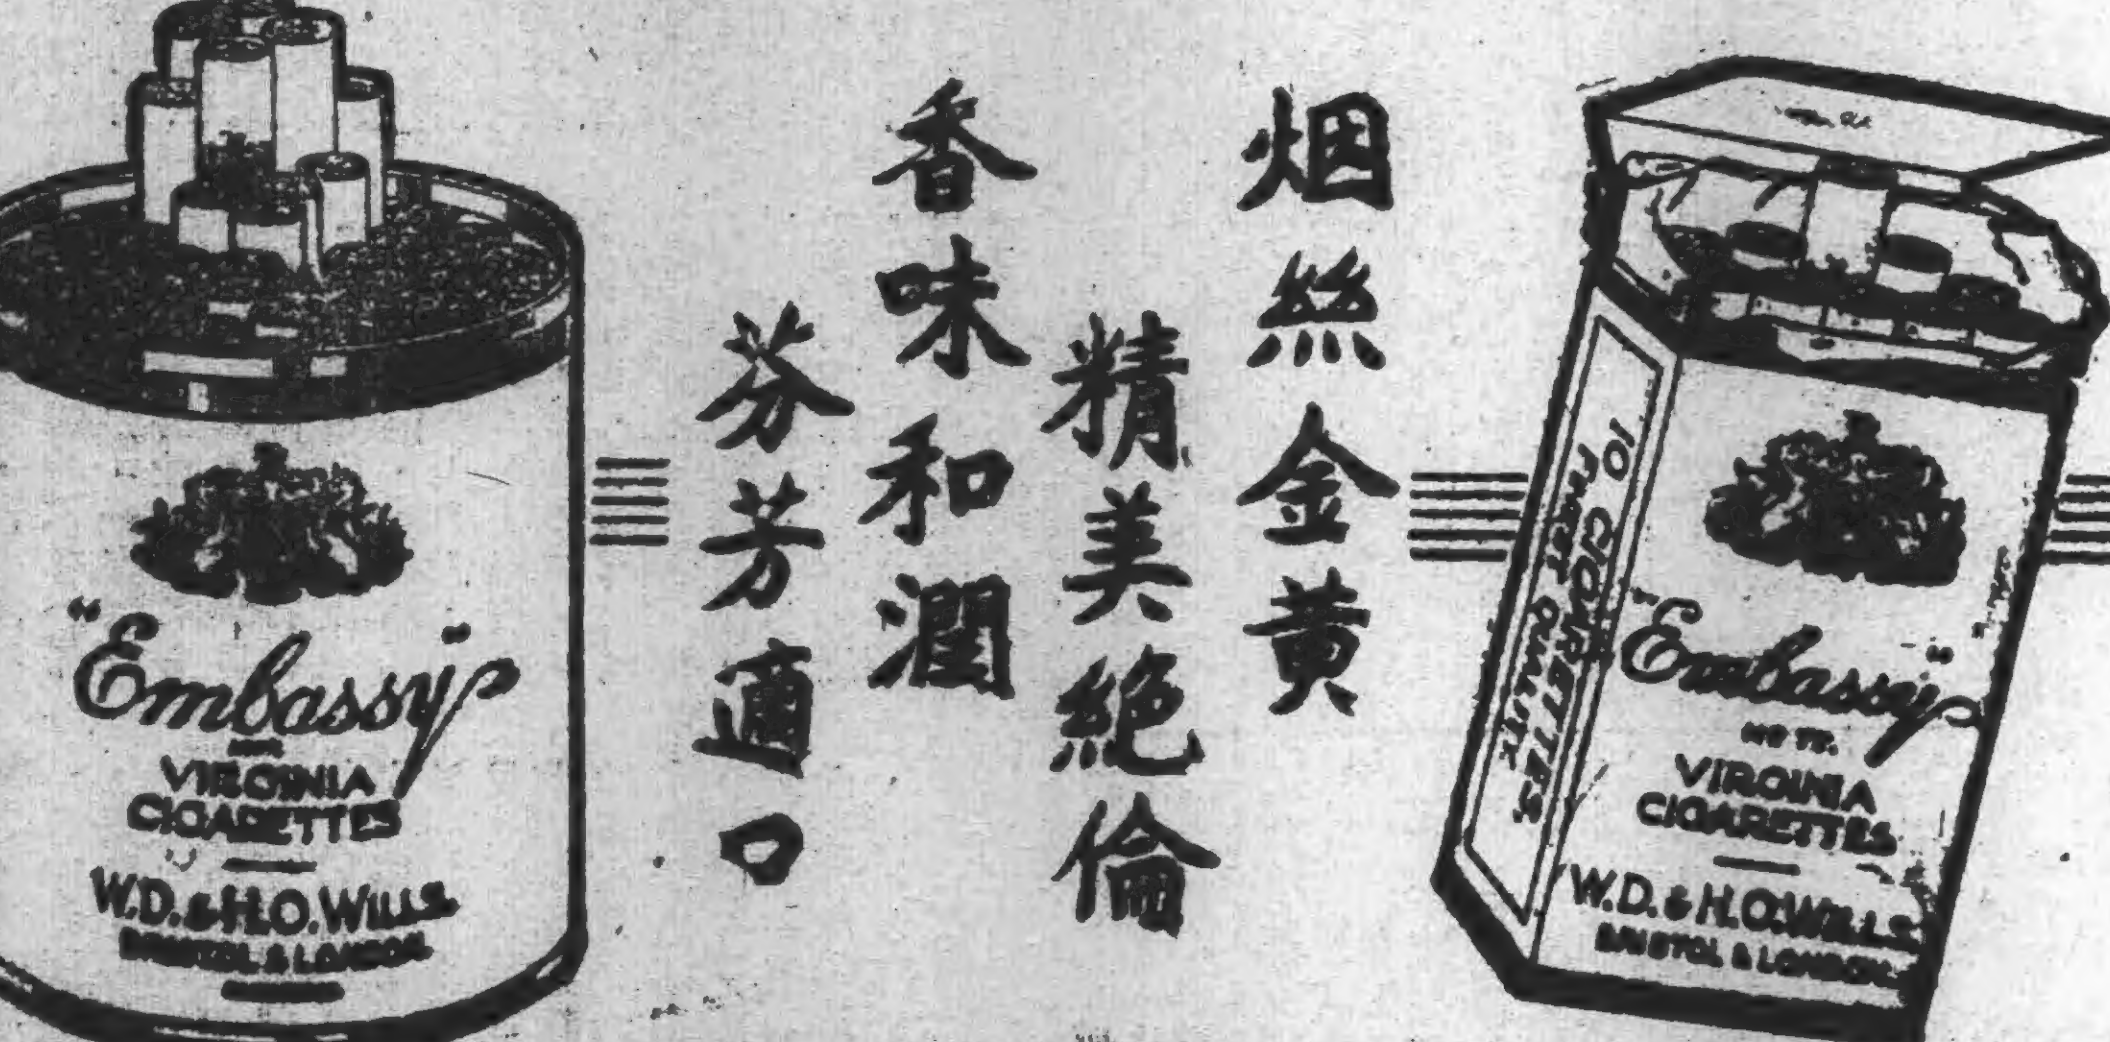 烟絲金黃
精美絕倫
香味和潤
芬芳適口
"Embassy"
VIRGINIA
CIGARETTES
W.D. & H.O. WILLS.
BRISTOL & LONDON.
10 CIGARETTES
FINEST QUALITY
"Embassy"
VIRGINIA
CIGARETTES
W.D. & H.O. WILLS.
BRISTOL & LONDON.